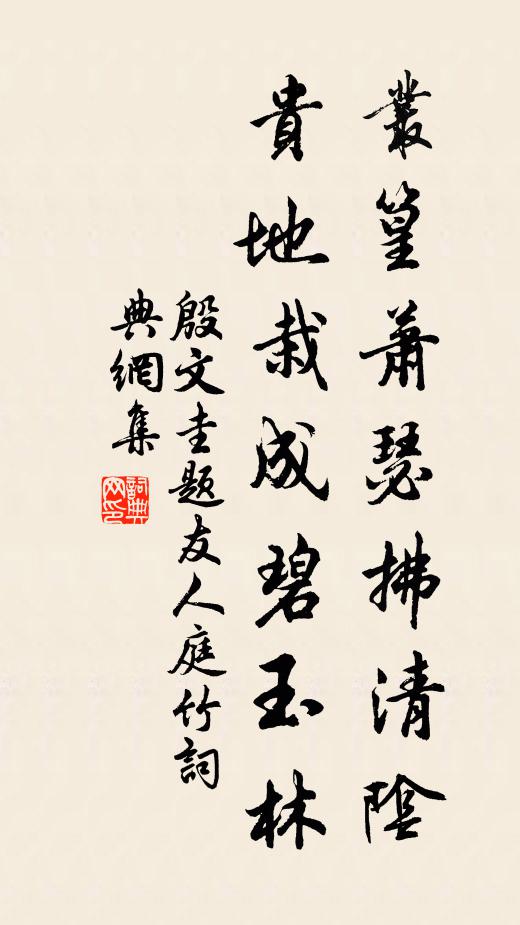 叢篁蕭瑟拂清陰
貴地栽成碧玉林
殷文圭題友人庭竹詞
典網集
詞典
网印